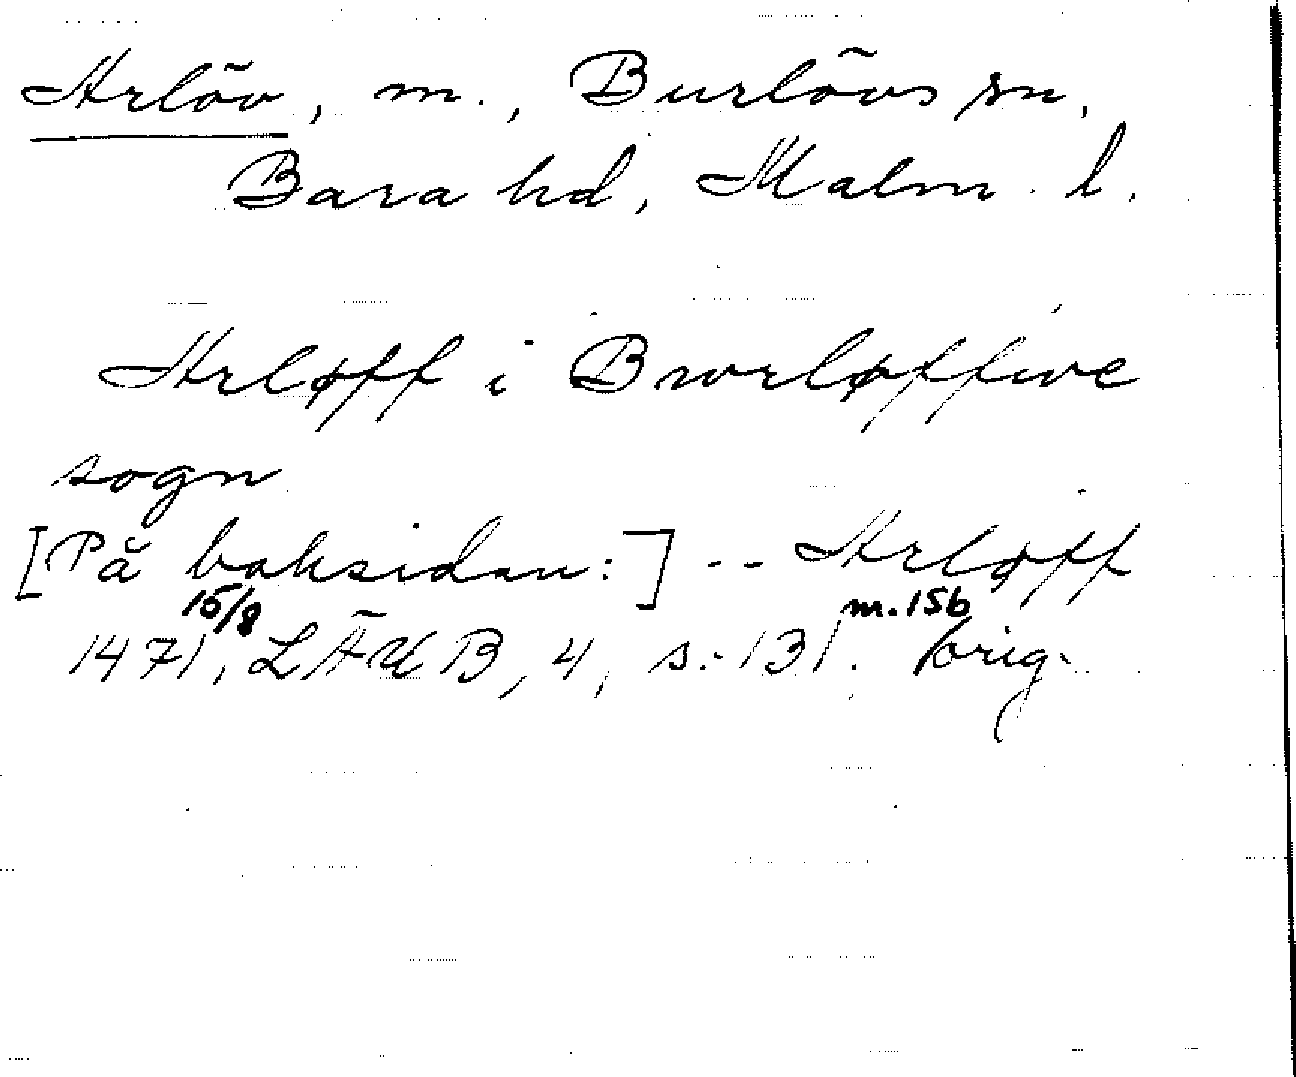 Arlöv, m., Burlövs sn,
Bara hd, Malm. l.
Arløff i Bwrløffwe
sogn
[På baksidan:] -- Arløff
15/8 m. 156
1471, LÄUB, 4, s. 131. orig.